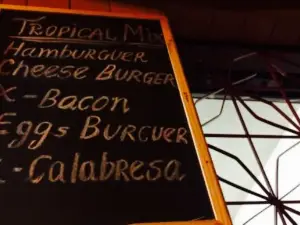 TROPICAL MIX
HAMBURGUER
CHEESE BURGER
X-BACON
EGGS BURGUER
X-CALABRESA